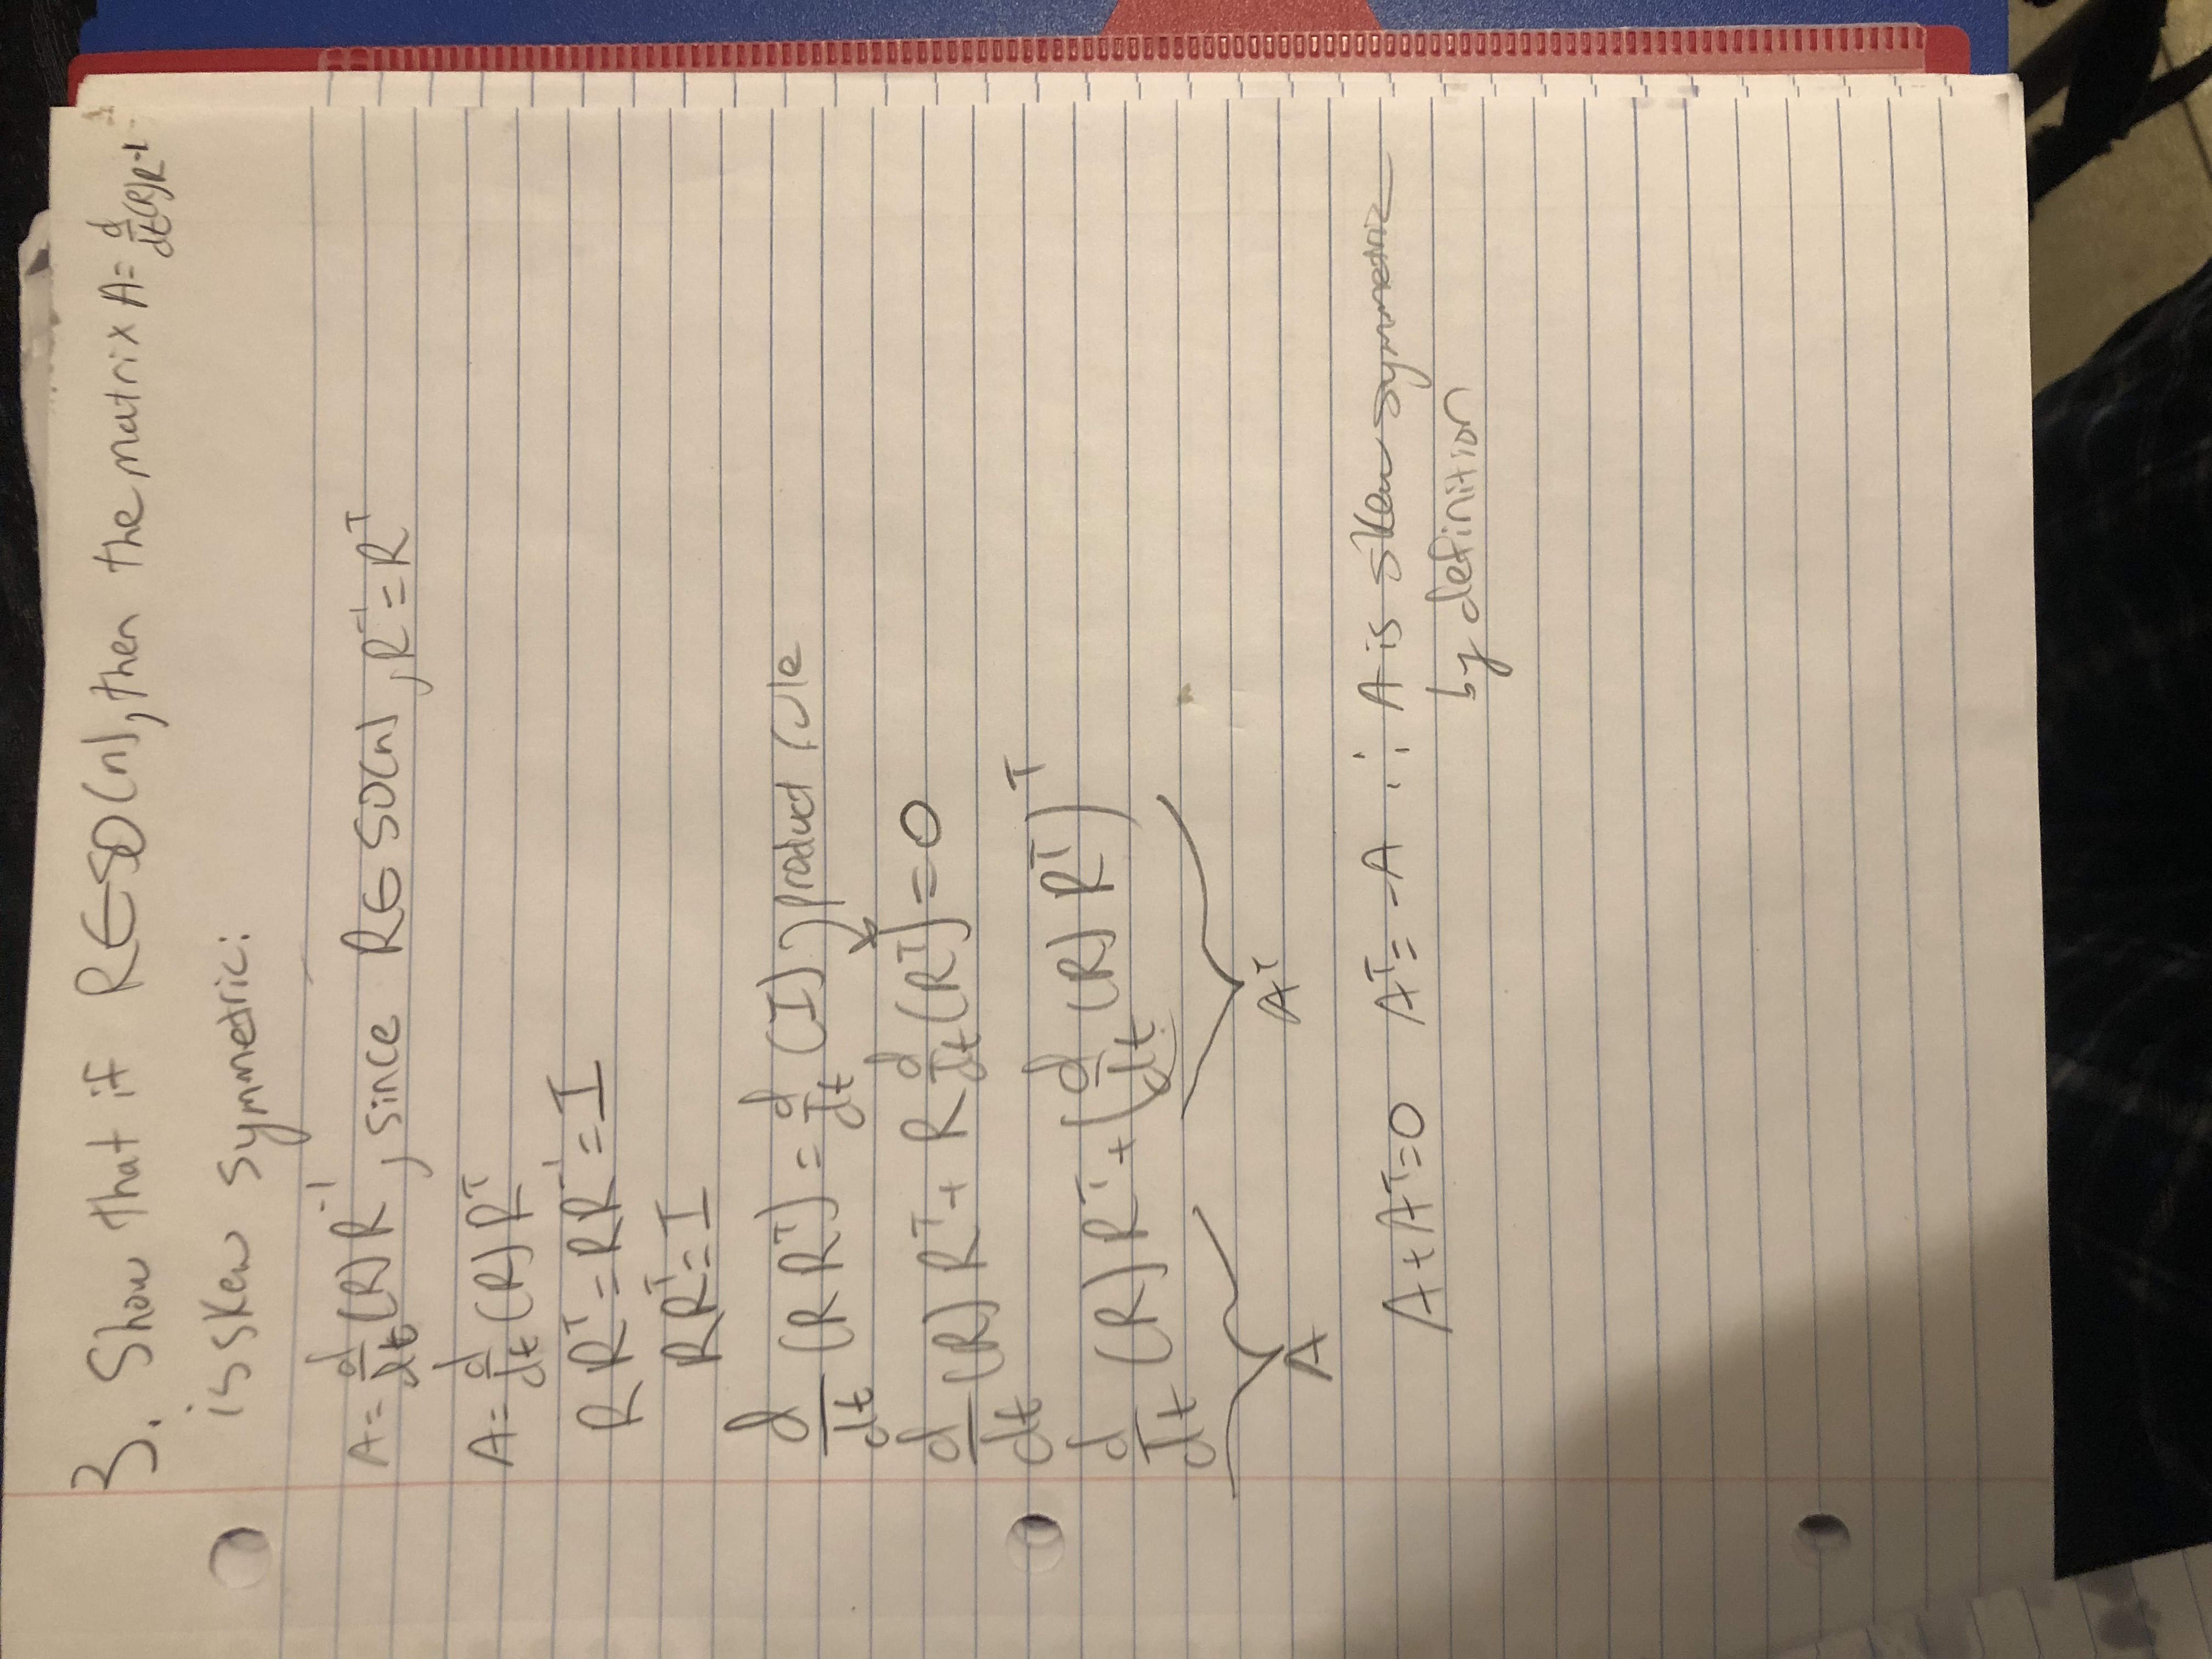 3. Show that if R∈SO(n), then the matrix A= d/dt(R)R⁻¹
is skew symmetric:
A= d/dt (R) R⁻¹, since R∈SO(n), R⁻¹=Rᵀ
A= d/dt (R) Rᵀ
R Rᵀ=RR⁻¹=I
RRᵀ=I
d/dt (R Rᵀ) = d/dt (I) product rule
d/dt (R) Rᵀ+ R d/dt (Rᵀ)=0
d/dt (R) Rᵀ+(d/dt (R) Rᵀ)ᵀ
A Aᵀ
A+Aᵀ=0 Aᵀ= -A ∴ A is skew symmetric
by definition